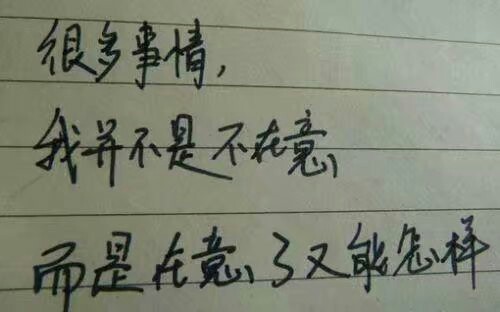 很多事情，
我并不是不在意
而是在意了又能怎样